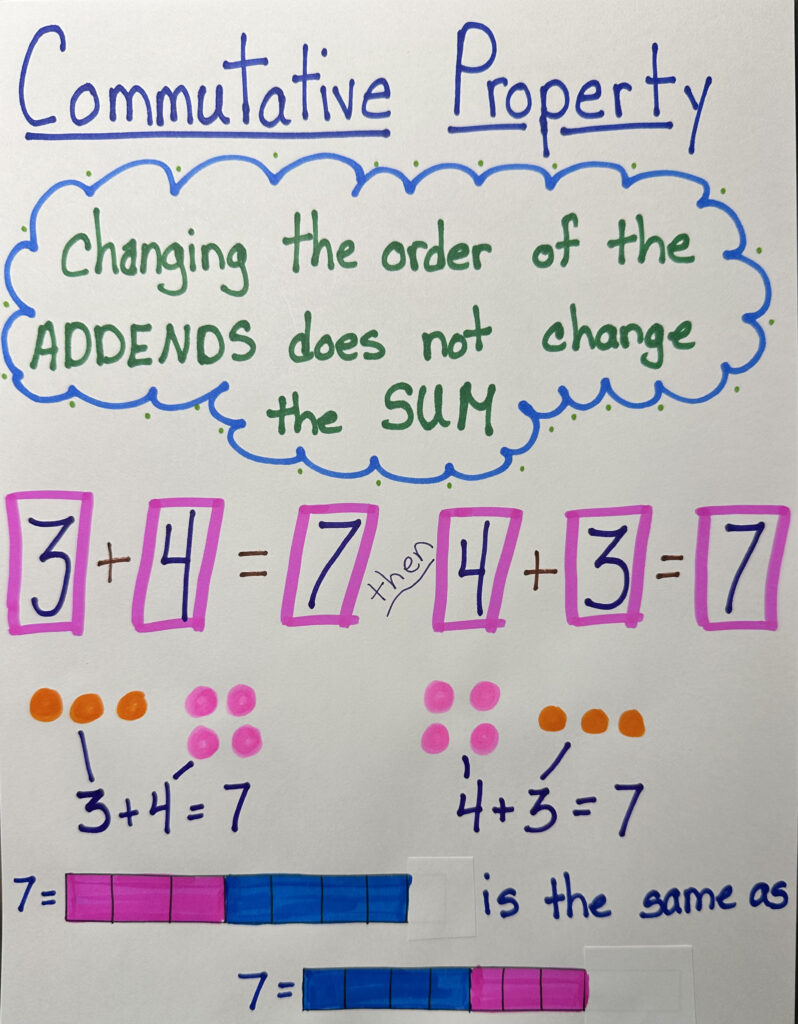 Commutative Property
Changing the order of the
ADDENDS does not change
the SUM
3 + 4 = 7 then 4 + 3 = 7
3 + 4 = 7 4 + 3 = 7
7 = is the same as
7 =